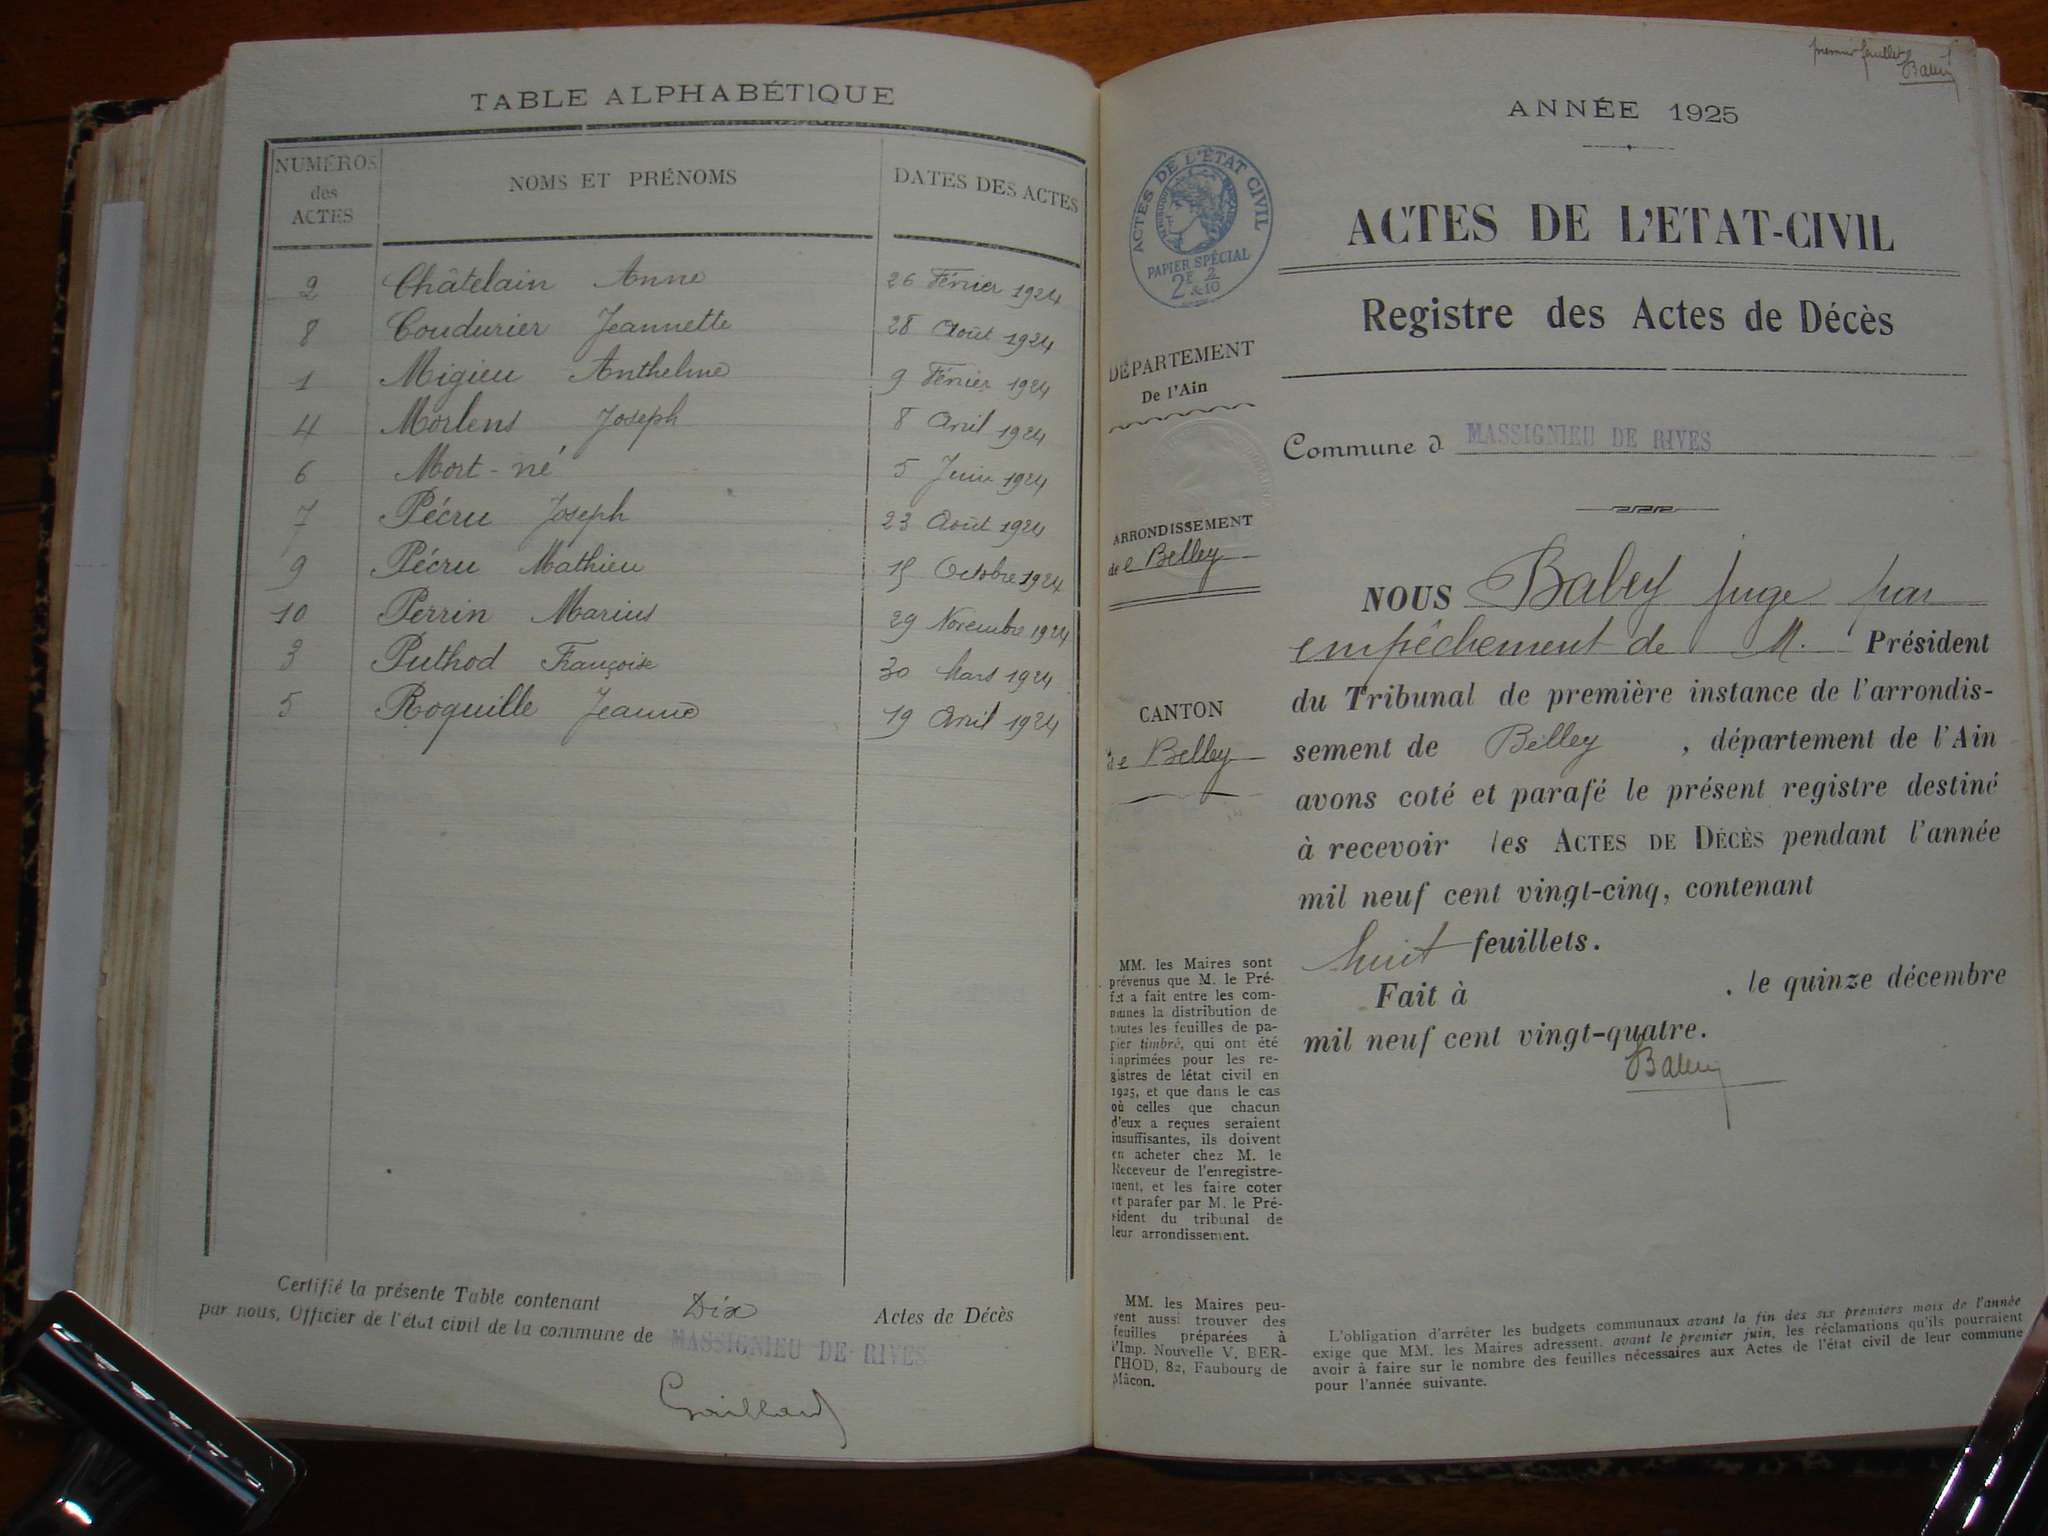 TABLE ALPHABÉTIQUE
NUMÉROS des ACTES NOMS ET PRÉNOMS DATES DES ACTES
2 Châtelain Anne 26 Février 1924
8 Coudurier Jeannette 28 Août 1924
1 Migieu Anthelme 9 Février 1924
4 Morlens Joseph 8 Avril 1924
6 Mort-né 5 Juin 1924
7 Pécru Joseph 23 Août 1924
9 Pécru Mathieu 15 Octobre 1924
10 Perrin Marius 29 Novembre 1924
3 Puthod Françoise 30 Mars 1924
5 Roquille Jeanne 19 Avril 1924
Certifié la présente Table contenant Dix Actes de Décès
par nous, Officier de l'état civil de la commune de MASSIGNIEU DE RIVES
Gaillard
premier feuillet
ANNÉE 1925
ACTES DE L'ÉTAT CIVIL
PAPIER SPÉCIAL
2F 2/10
ACTES DE L'ETAT-CIVIL
Registre des Actes de Décès
DÉPARTEMENT
De l'Ain
Commune d MASSIGNIEU DE RIVES
ARRONDISSEMENT
de Belley
CANTON
de Belley
NOUS Baley juge par
empêchement de M. Président
du Tribunal de première instance de l'arrondis-
sement de Belley, département de l'Ain
avons coté et parafé le présent registre destiné
à recevoir les ACTES DE DÉCÈS pendant l'année
mil neuf cent vingt-cinq, contenant
huit feuillets.
Fait à , le quinze décembre
mil neuf cent vingt-quatre.
MM. les Maires sont
prévenus que M. le Pré-
fet a fait entre les com-
munes la distribution de
toutes les feuilles de pa-
pier timbré, qui ont été
imprimées pour les re-
gistres de létat civil en
1925, et que dans le cas
où celles que chacun
d'eux a reçues seraient
insuffisantes, ils doivent
en acheter chez M. le
Receveur de l'enregistre-
ment, et les faire coter
et parafer par M. le Pré-
sident du tribunal de
leur arrondissement.
MM. les Maires peu-
vent aussi trouver des
feuilles préparées à
l'Imp. Nouvelle V. BER-
THOD, 82, Faubourg de
Mâcon.
L'obligation d'arrêter les budgets communaux avant la fin des six premiers mois de l'année
exige que MM. les Maires adressent, avant le premier juin, les réclamations qu'ils pourraient
avoir à faire sur le nombre des feuilles nécessaires aux Actes de l'état civil de leur commune
pour l'année suivante.